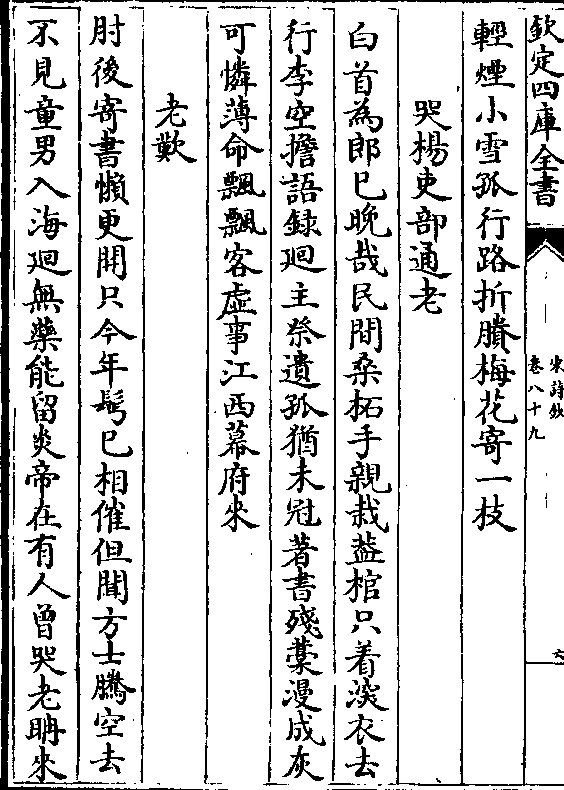 欽定四庫全書
宋詩鈔
卷八十九
輕煙小雪孤行路折賸梅花寄一枝
哭楊吏部通老
白首為郎已晚哉民間桑柘手親栽葢棺只着深衣去
行李空擔語録廻主祭遺孤猶未冠著書殘藁漫成灰
可憐薄命飄飄客虛事江西幕府來
老歎
肘後寄書懶更開只今年髩已相催但聞方士騰空去
不見童男入海廻無藥能留炎帝在有人曾哭老聃來